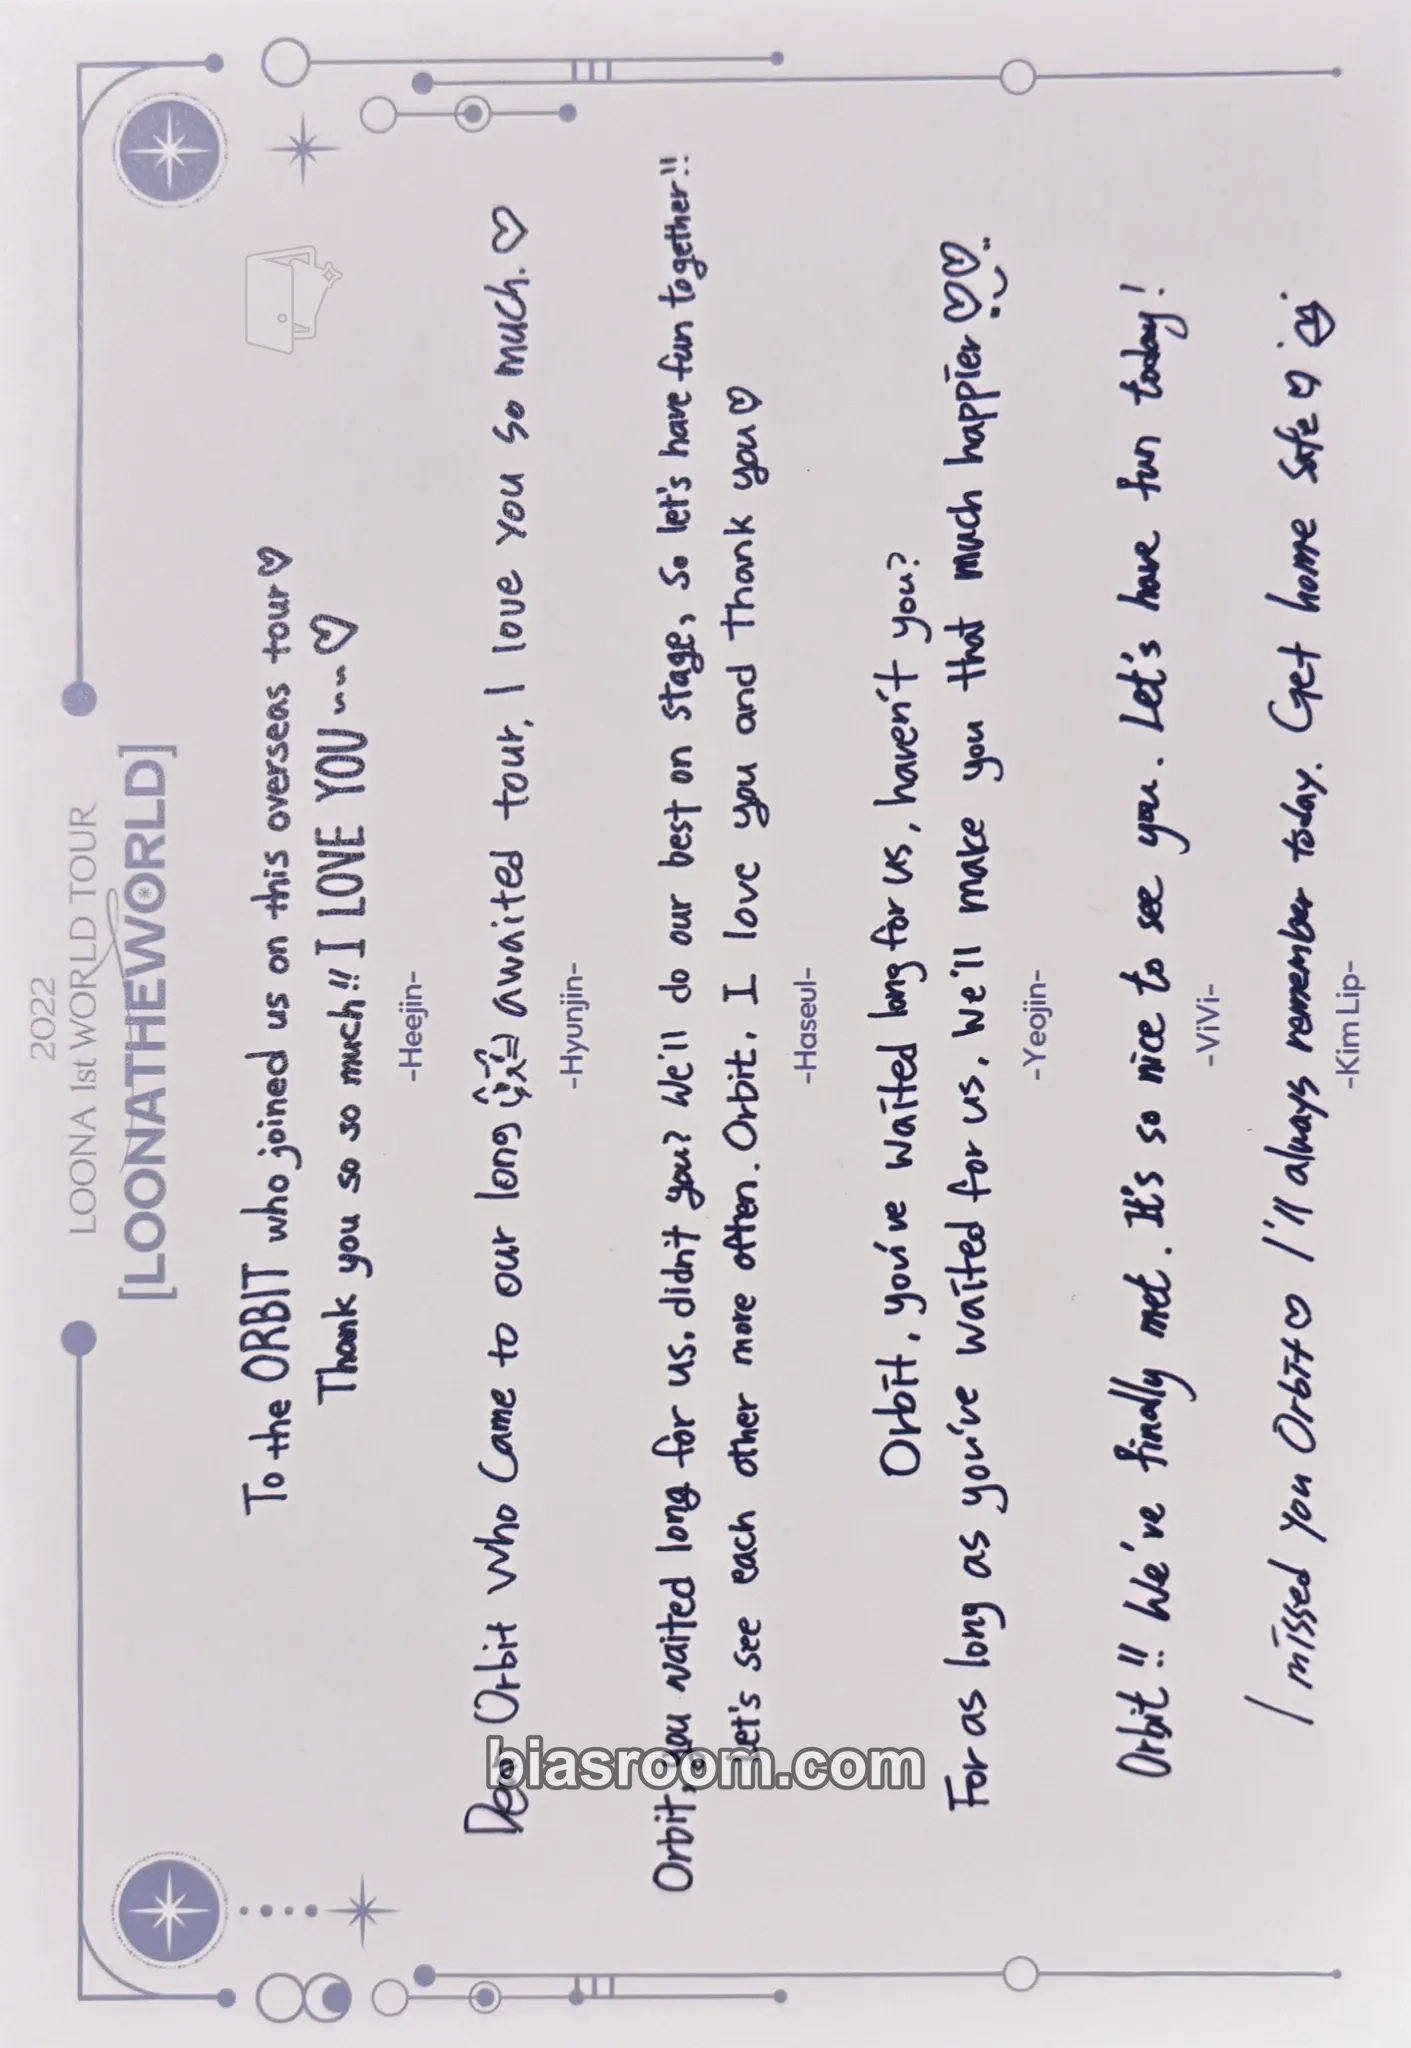 2022
LOONA 1st WORLD TOUR
[LOONATHEWORLD]
To the ORBIT who joined us on this overseas tour♡
Thank you so so much!! I LOVE YOU~~♡
-Heejin-
Dear Orbit who came to our long awaited tour, I love you so much.♡
-Hyunjin-
Orbit, you waited long for us, didn't you? We'll do our best on stage, so let's have fun together!!
Let's see each other more often. Orbit, I love you and thank you♡
-Haseul-
Orbit, you've waited long for us, haven't you?
For as long as you've waited for us, we'll make you that much happier♡♡
-Yeojin-
Orbit!! We've finally met. It's so nice to see you. Let's have fun today!
-ViVi-
I missed you Orbit♡ I'll always remember today. Get home safe♡
-Kim Lip-
biasroom.com